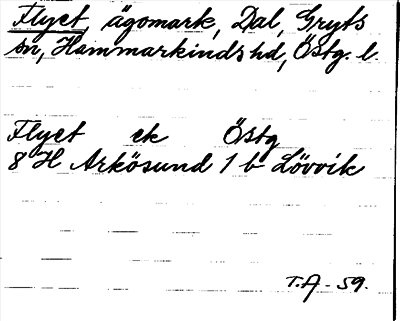 Flyet, ägomark, Dal, Gryts
sn, Hammarkinds hd, Östg. l.
Flyet ek Östg
8 H Arkösund 1 b Lövvik
T.A - 59.